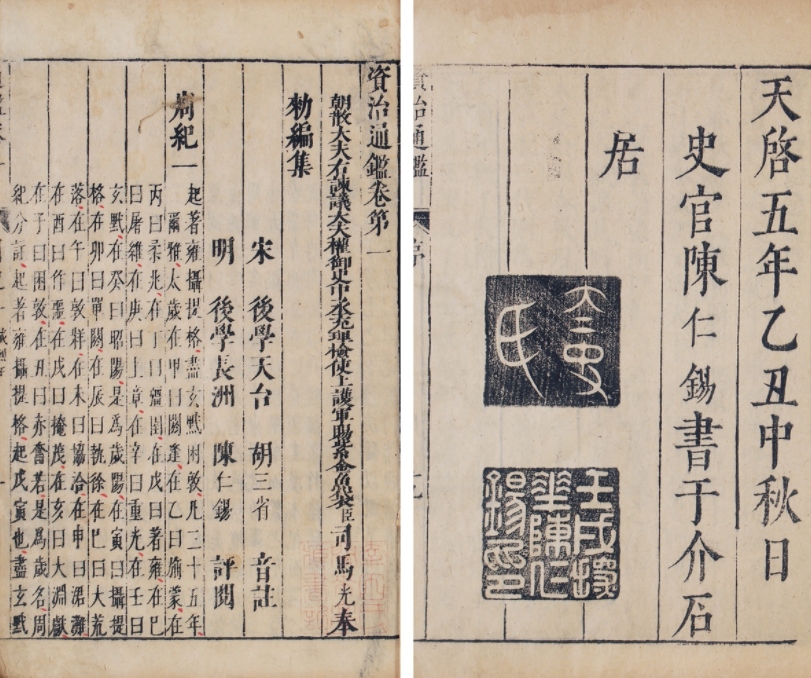 天啓五年乙丑中秋日
史官陳仁錫書于介石
居
太史氏
壬戌探花陳仁錫印
資治通鑑
序
資治通鑑卷第一
朝散大夫右諫議大夫權御史中丞充理檢使上護軍賜紫金魚袋臣司馬光奉
勑編集
宋 後學天台 胡三省 音註
明 後學長洲 陳仁錫 評閱
周紀一
起著雍攝提格盡玄黓困敦凡三十五年
爾雅太歲在甲曰閼逢在乙曰旃蒙在
丙曰柔兆在丁曰彊圉在戊曰著雍在己
曰屠維在庚曰上章在辛曰重光在壬曰
玄黓在癸曰昭陽是爲歲陽在寅曰攝提
格在卯曰單閼在辰曰執徐在巳曰大荒
落在午曰敦牂在未曰協洽在申曰涒灘
在酉曰作噩在戌曰掩茂在亥曰大淵獻
在子曰困敦在丑曰赤奮若是爲歲名周
紀分註起著雍攝提格起戊寅也盡玄黓